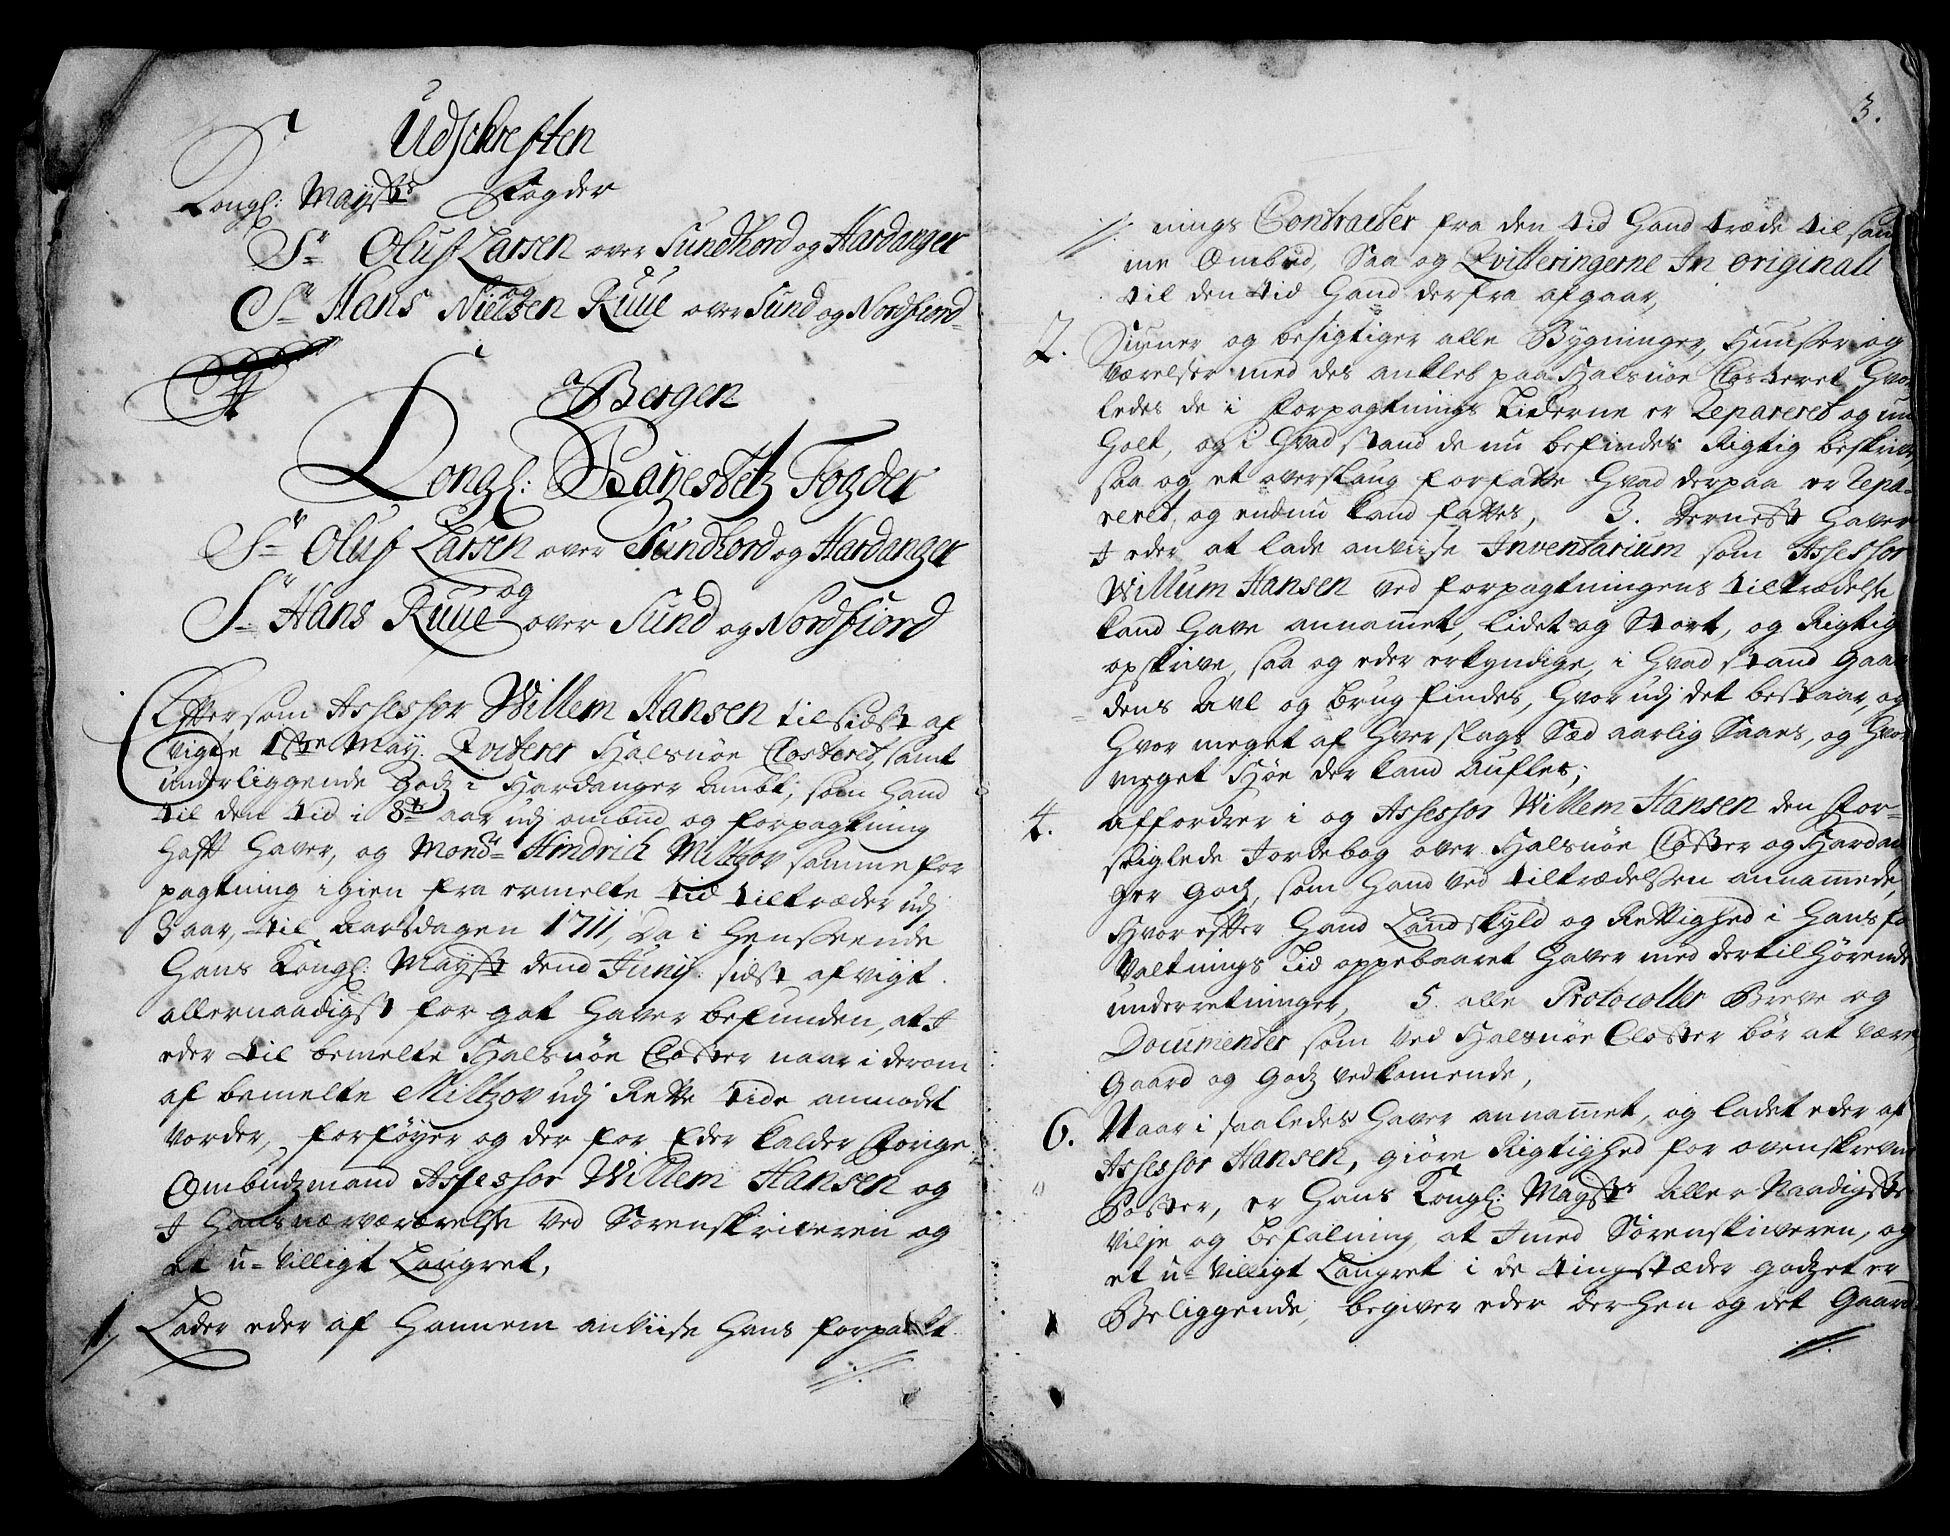 Udschreften
Kongl: Maysts Fogder
Sr Oluf Larsen over Sundhord og Hardanger
og
Sr Hans Nielsen Ruue over Sund og Nordfiord
a Bergen
Kongl: Mayestetz Fogder
Sr Oluf Larsen over Sundhord og Hardanger
og
Sr Hans Ruue over Sund og Nordfiord
Eftersom Assessor Willem Hansen tilsidst af
vigte 1ste May. Qviterer Halsnøe Closteret, samt
underliggende Godz i Hardanger Ambt, som hand
til den tid i 8te aar udj ombud og forpagtning
hafft haver, og Monsr Hindrich Miltzov samme for
pagtning igien fra ermelte tid tiltræder udj
3 aar, til Aarsdagen 1711, Da i Henseende
Hans Kongl: Mayst dend Junij sidst afvigt
allernaadigst for got haver befunden, at I
eder til bemelte Halsnøe Closter naar i derom
af bemelte Miltzov udj Rette tide anmodet
vorder, forføyer og der for Eder kalder Forige
Ombudzmand Assessor Willem Hansen og
I Hans nærværærelse ved Sorenskriveren og
et u-villigt Laugret,
1, Lader eder af Hannem anviise Hans forpagt
//.
3.
//. nings Contracter fra den tid Hand træde til sam
me Ombud, Saa og Qvitteringerne In originali
til den tid Hand derfra afgaar,
2. Siuner og besigtiger alle Bygninger, Huuser og
værelser med des ankleb paa Halsnøe Closteret Hvor
ledes de i forpagtnings Tiderne er Repareret og un
holt, og i Hvad stand de nu befindes Rigtig beskrive,
saa og et overslaug forfatte Hvad derpaa er Repa-
reret, og endnu kand fattes, 3. Dernest Haver
I eder at lade anviise Inventarium som Assessor
Willum Hansen ved forpagtningens tiltrædelse
kand Have annammet, lidet og Stort, og Rigtig
opskrive, saa og eder erkyndige, i Hvad stand Gaar
dens Avl og brug findes, Hvor udj det bestaar, og
Hvor meget af Hver slags Sæd aarlig Saaes, og Hvor
meget Høe der kand aufles;
4. Affordrer i og Assessor Willem Hansen den For-
seiglede Jordebog over Halsnøe Closter og Hardan
ger Godz, som Hand ved tiltrædelsen annammede,
Hvorefter Hand Landskyld og Rettighed i Hans for
valtnings Tid oppebaaret Haver med dertil Hørende
underretninger, 5. alle Protocoller Breve og
Documenter som ved Halsnøe Closter bør at være,
Gaard og Godz vedkomende,
6. Naar i saaledes Haver annammet, og ladet eder af
Assessor Hansen, giøre Rigtighed for ovenskrevne
Poster, er Hans Kongl: Maysts Aller Naadigste
vilje og befalning, at I med Sorenskriveren, og
et u-villigt Laugret i de tingstæder godzet er
Beliggende, begiver eder derhen og det Gaard
//.